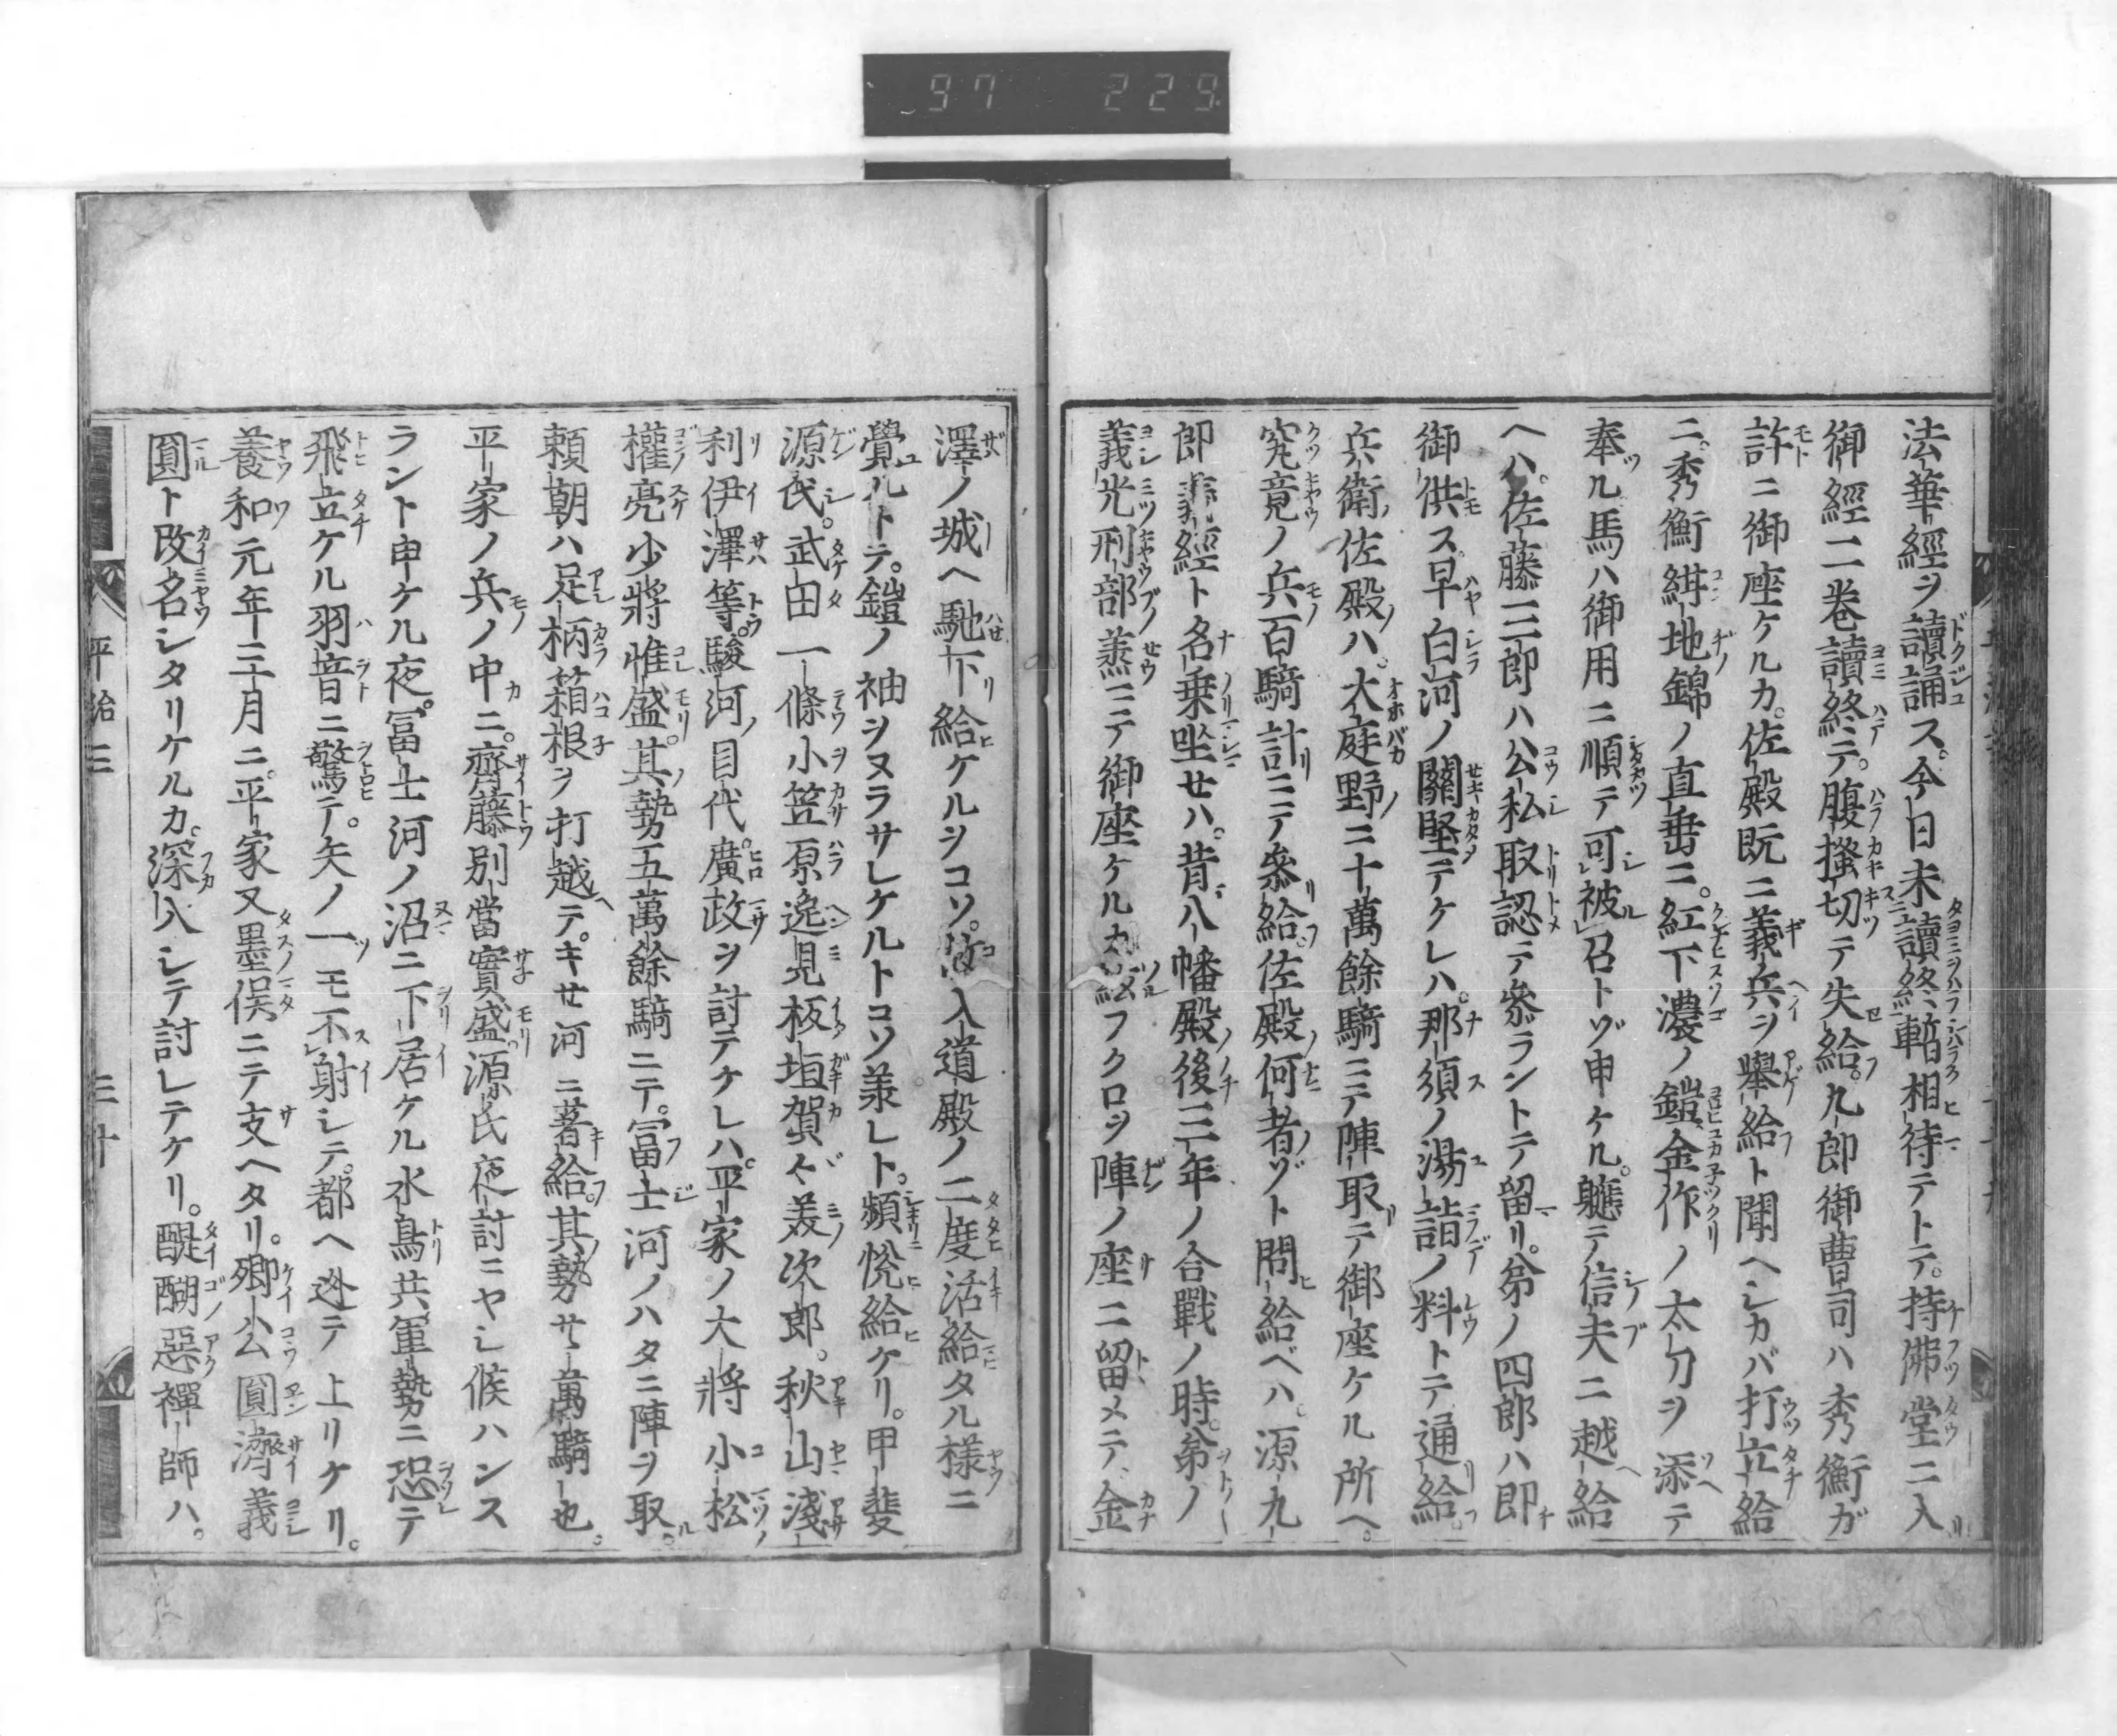 97 229
法華經ヲ讀誦ス。今日未讀終暫相待テトテ。持佛堂ニ入
御經二巻讀終テ。腹搔切テ失給。九郎御曹司ハ秀衡ガ
許ニ御座ケルカ。佐殿既ニ義兵ヲ擧給ト聞ヘシカバ打立給
ニ。秀衡紺地錦ノ直垂ニ。紅下濃ノ鎧金作ノ太刀ヲ添テ
奉ル馬ハ御用ニ順テ可被召トゾ申ケル。軈テ信夫ニ越給
ヘハ。佐藤三郎ハ公私取認テ參ラントテ留リ。弟ノ四郎ハ即
御供ス早白河ノ關堅テケレハ。那須ノ湯詣ノ料トテ通給。
兵衛佐殿ハ。大庭野ニ十萬餘騎ニテ陣取テ御座ケル所ヘ。
究竟ノ兵百騎計ニテ參給。佐殿何者ゾト問給ベハ。源九
郎義經ト名乗坐セハ。昔八幡殿後三年ノ合戰ノ時。弟ノ
義光刑部丞ニテ御座ケルカ弦フクロヲ陣ノ座ニ留メテ金
澤ノ城ヘ馳下給ケルヲコソ。故入道殿ノ二度活給タル様ニ
覺ルトテ。鎧ノ袖ヲヌラサレケルトコソ承レト。頻悦給ケリ。甲斐
源氏。武田一條小笠原逸見板垣賀〻美次郎。秋山淺
利伊澤等。駿河目代。廣政ヲ討テケレハ。平家ノ大將小松
權亮少將惟盛。其勢五萬餘騎ニテ。富士河ノハタニ陣ヲ取。
頼朝ハ足柄箱根ヲ打越テ。キせ河ニ著給。其勢廿萬騎也。
平家ノ兵ノ中ニ。齊藤別當實盛。源氏夜討ニヤシ候ハンス
ラント申ケル夜。冨士河ノ沼ニ下居ケル水鳥共軍勢ニ恐テ
飛立ケル羽音ニ驚テ。矢ノ一モ不射シテ。都ヘ迯テ上リケリ。
養和元年三月ニ。平家又墨俣ニテ支ヘタリ。卿公圓濟義
圓ト改名シタリケルカ。深入シテ討レテケリ。醍醐惡禪師ハ。
平治三 三十